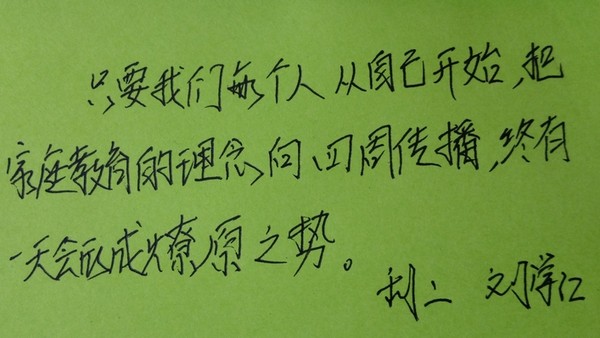 只要我们每个人从自己开始,把
家庭教育的理念向四周传播,终有
一天会形成燎原之势。
刘学江